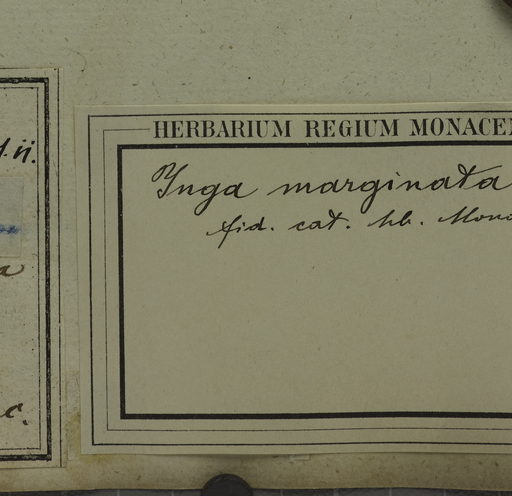 HERBARIUM REGIUM MONACEN
Inga marginata
fid. cat. hb. Mona